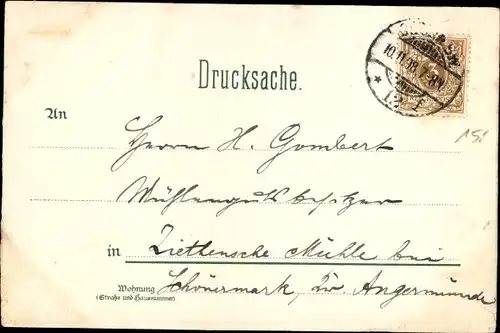 Drucksache.
10.11.98
An
Herrn H. Gombert
Mühlengutsbesitzer
in Ziethensche Mühle bei
Wohnung Schönermark, Kr. Angermünde
(Straße und Hausnummer)